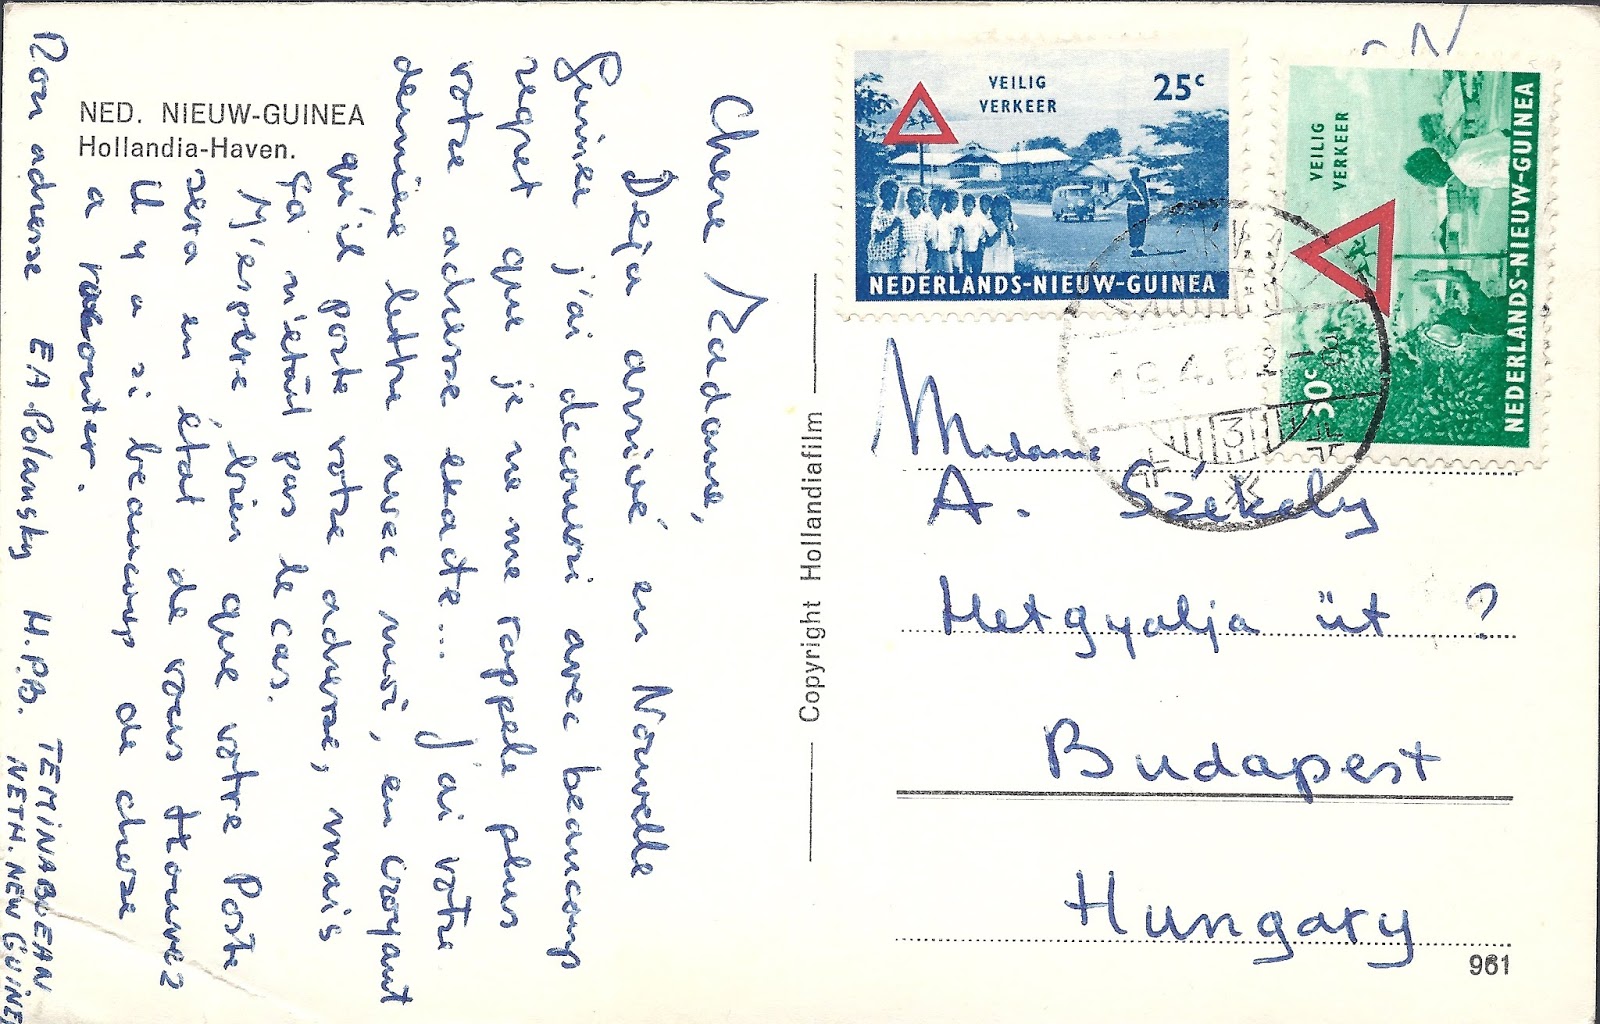 NED. NIEUW-GUINEA
Hollandia-Haven.
Chere Madame,
Deja arrivé en Nouvelle
Guinée j'ai decouvri avec beaucoup
regret que je ne me rappele plus
votre adresse exacte... j'ai votre
derniere lettre avec moi, en croyant
qu'il porte votre adresse, mais
ça n'etait pas le cas.
M'espere bien que votre Poste
sera en état de vous trouvez
Il y a si beaucoup de chose
a raconter.
Mon adresse EA. Polansky H.P.B. TEMINABUEAN
NETH. NEW GUINEA
Copyright Hollandiafilm
VEILIG
VERKEER
25c
NEDERLANDS-NIEUW-GUINEA
VEILIG
VERKEER
30c
NEDERLANDS-NIEUW-GUINEA
19.4.62
3
Madame
A. Székely
Hetgyalja üt ?
Budapest
Hungary
961